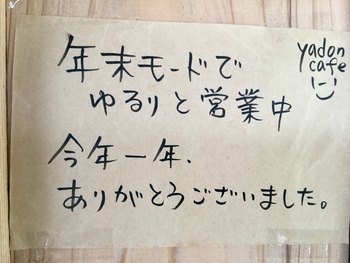 yadon
cafe
年末モードで
ゆるりと営業中
今年一年、
ありがとうございました。